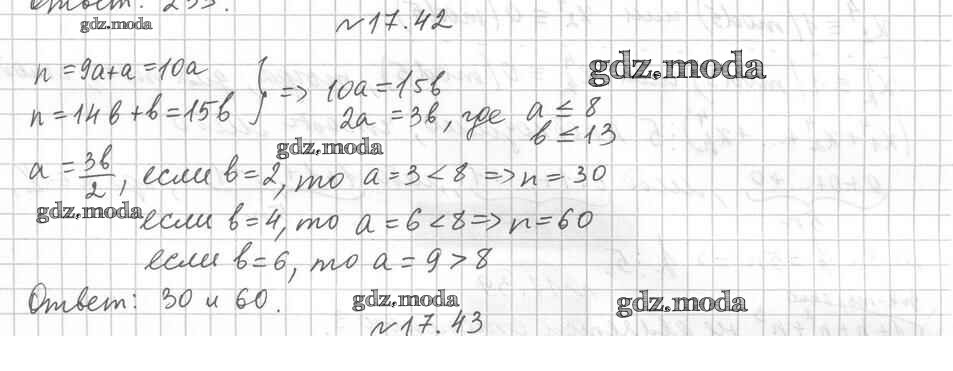 Ответ: 255.
gdz.moda
№17.42
n = 9a+a = 10a
n = 14b+b = 15b } => 10a = 15b
gdz.moda
2a = 3b, где a ≤ 8
b ≤ 13
gdz.moda
a = 3b/2, если b=2, то a = 3 < 8 => n = 30
gdz.moda
если b=4, то a = 6 < 8 => n = 60
если b=6, то a = 9 > 8
Ответ: 30 и 60.
gdz.moda
gdz.moda
№17.43